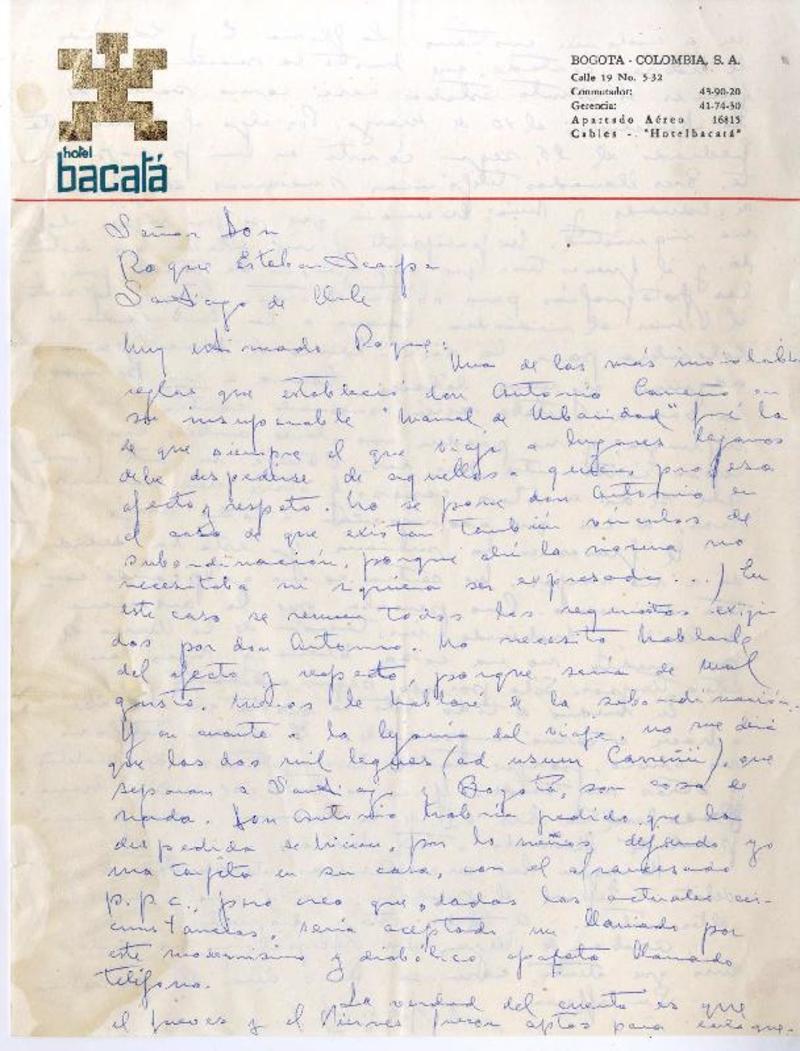 hotel
bacatá
BOGOTA - COLOMBIA, S. A.
Calle 19 No. 5-32
Conmutador: 43-90-20
Gerencia: 41-74-30
Apartado Aéreo 16815
Cables -. "Hotelbacatá"
Señor Don
Roque Esteban Scarpa
Santiago de Chile
Muy estimado Roque:
Una de las más inviolables
reglas que estableció don Antonio Carreño en
su insuperable "Manual de Urbanidad" fué la
de que siempre el que viaja a lugares lejanos
debe despedirse de aquellos a quienes profesa
afecto y respeto. No se pone don Antonio en
el caso de que existan también vínculos de
subordinación, porque ahí la norma no
necesitaba ni siquiera ser expresada...) En
este caso se reunen todos los requisitos exigi-
dos por don Antonio. No necesito hablarle
del afecto y respeto, porque sería de mal
gusto. Menos le hablaré de la subordinación.
Y en cuanto a la lejanía del viaje, no me dirá
que las dos mil leguas (ad usum Carreñii), que
separan a Santiago y Bogotá, son cosa de
nada. Don Antonio habría pedido que la
despedida se hiciera, por lo menos, dejando yo
una tarjeta en su casa, con el afrancesado
p.p.c., pero creo que, dadas las actuales cir-
cunstancias, sería aceptado un llamado por
este modernísimo y diabólico aparato llamado
teléfono.
La verdad del cuento es que
el Jueves y el Viernes fueron aptos para